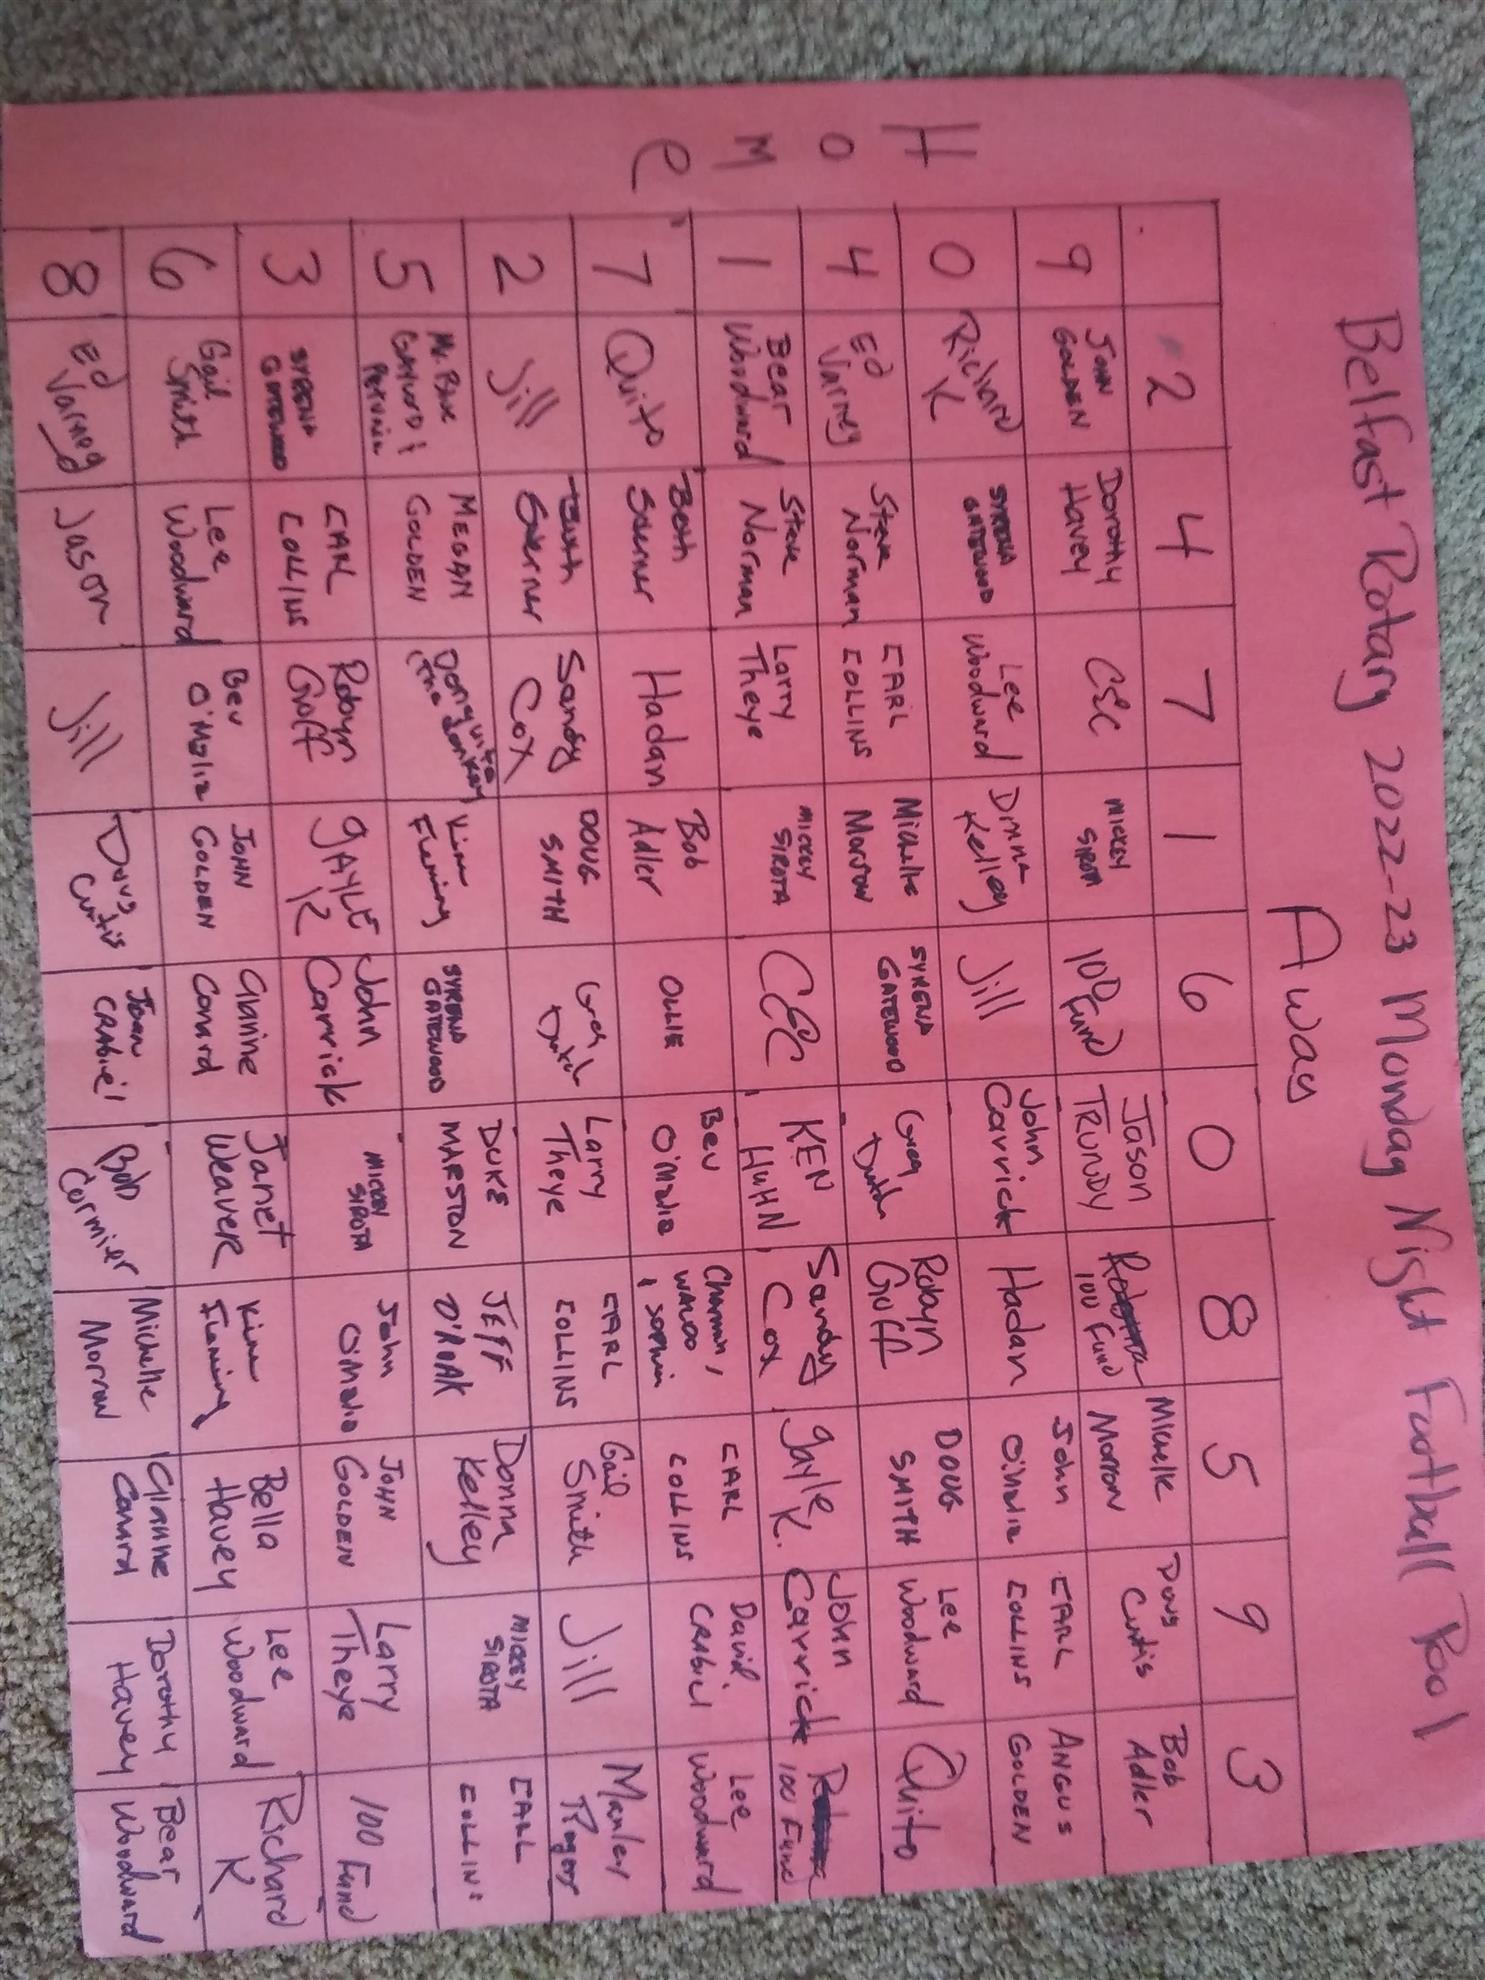 Belfast Rotary 2022-23 Monday Night Football Pool
Away
Home
2 4 7 1 6 0 8 5 9 3
9 JOHN GOLDEN Dorothy Havey C&C MICKEY SIROTA 100 Fund Jason TRUNDY 100 Fund Michelle Morrow Doug Curtis Bob Adler
0 Richard K SYRENA GATEWOOD Lee Woodward Donna Kelley Jill John Carrick Hadan John O'Malia CARL COLLINS ANGUS GOLDEN
4 Ed Varney Steve Norman CARL COLLINS Michelle Morrow SYRENA GATEWOOD Greg Robyn Goff DOUG SMITH Lee Woodward Quito
1 Bear Woodward Steve Norman Larry Theye MICKEY SIROTA C&C KEN HUHN Sandy Cox Gayle K. John Carrick 100 Fund
7 Quito Beth Hadan Bob Adler OLLIE Bev O'Malia CARL COLLINS David CRABIEL Lee Woodward
2 Jill Beth Sandy Cox DOUG SMITH Greg Larry Theye CARL COLLINS Gail Smith Jill Manley Rogers
5 Mr. Blue GAYLORD & MEGAN GOLDEN Donquito (the donkey) Kim Fleming SYRENA GATEWOOD DUKE MARSTON JEFF Donna Kelley MICKEY SIROTA CARL COLLINS
3 SYRENA GATEWOOD CARL COLLINS Robyn Goff GAYLE K John Carrick MICKEY SIROTA John O'Malia JOHN GOLDEN Larry Theye 100 Fund
6 Gail Smith Lee Woodward Bev O'Malia JOHN GOLDEN Glanine Conard Janet WEAVER Kim Fleming Bella Havey Lee Woodward Richard K
8 Ed Varney Jason Jill Doug Curtis Joan CRABIEL Bob Cormier Michelle Morrow Glannie Conard Dorothy Havey Bear Woodward